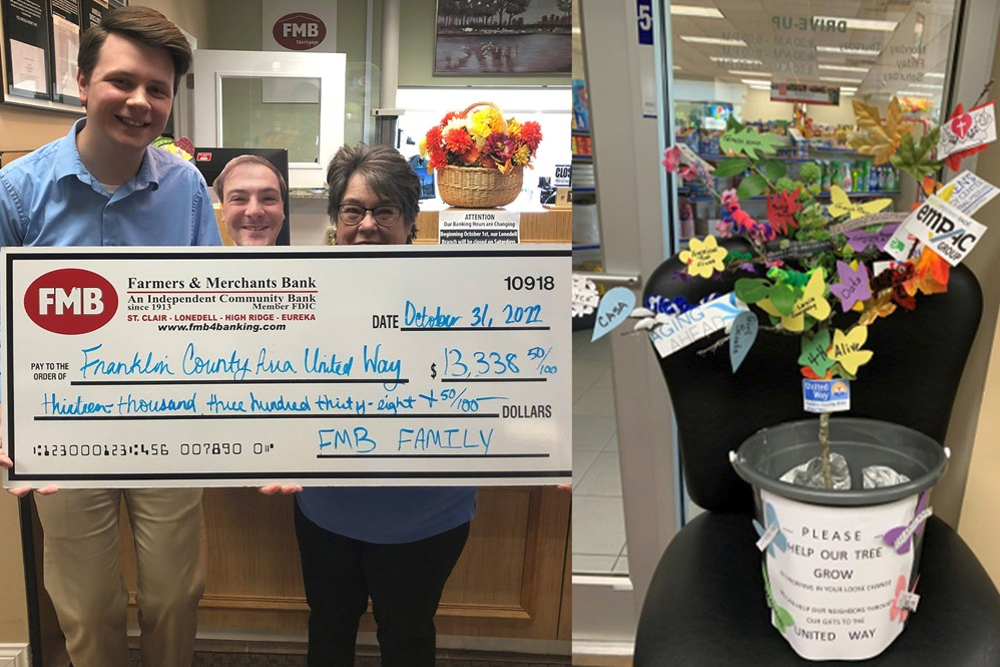 FMB
CLOSE
ATTENTION
Our Banking Hours are Changing
Beginning October 1st, our Lonedell
Branch will be closed on Saturdays
FMB
Farmers & Merchants Bank
An Independent Community Bank
since 1913 Member FDIC
ST. CLAIR - LONEDELL - HIGH RIDGE - EUREKA
www.fmb4banking.com
10918
DATE October 31, 2022
PAY TO THE
ORDER OF Franklin County Area United Way $ 13,338 50/100
thirteen thousand three hundred thirty-eight + 50/100 DOLLARS
FMB FAMILY
5
DRIVE-UP
Monday
Thursday
Friday
Saturday
empAC
GROUP
CASA
AGING AHEAD
4-H
Alive
United
Way
PLEASE
HELP OUR TREE
GROW
OUR GIFTS TO THE
UNITED WAY